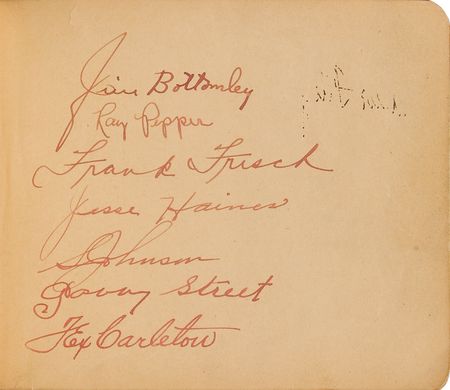 Jim Bottomley
Ray Pepper
Frank Frisch
Jesse Haines
S Johnson
Gabby Street
Tex Carleton